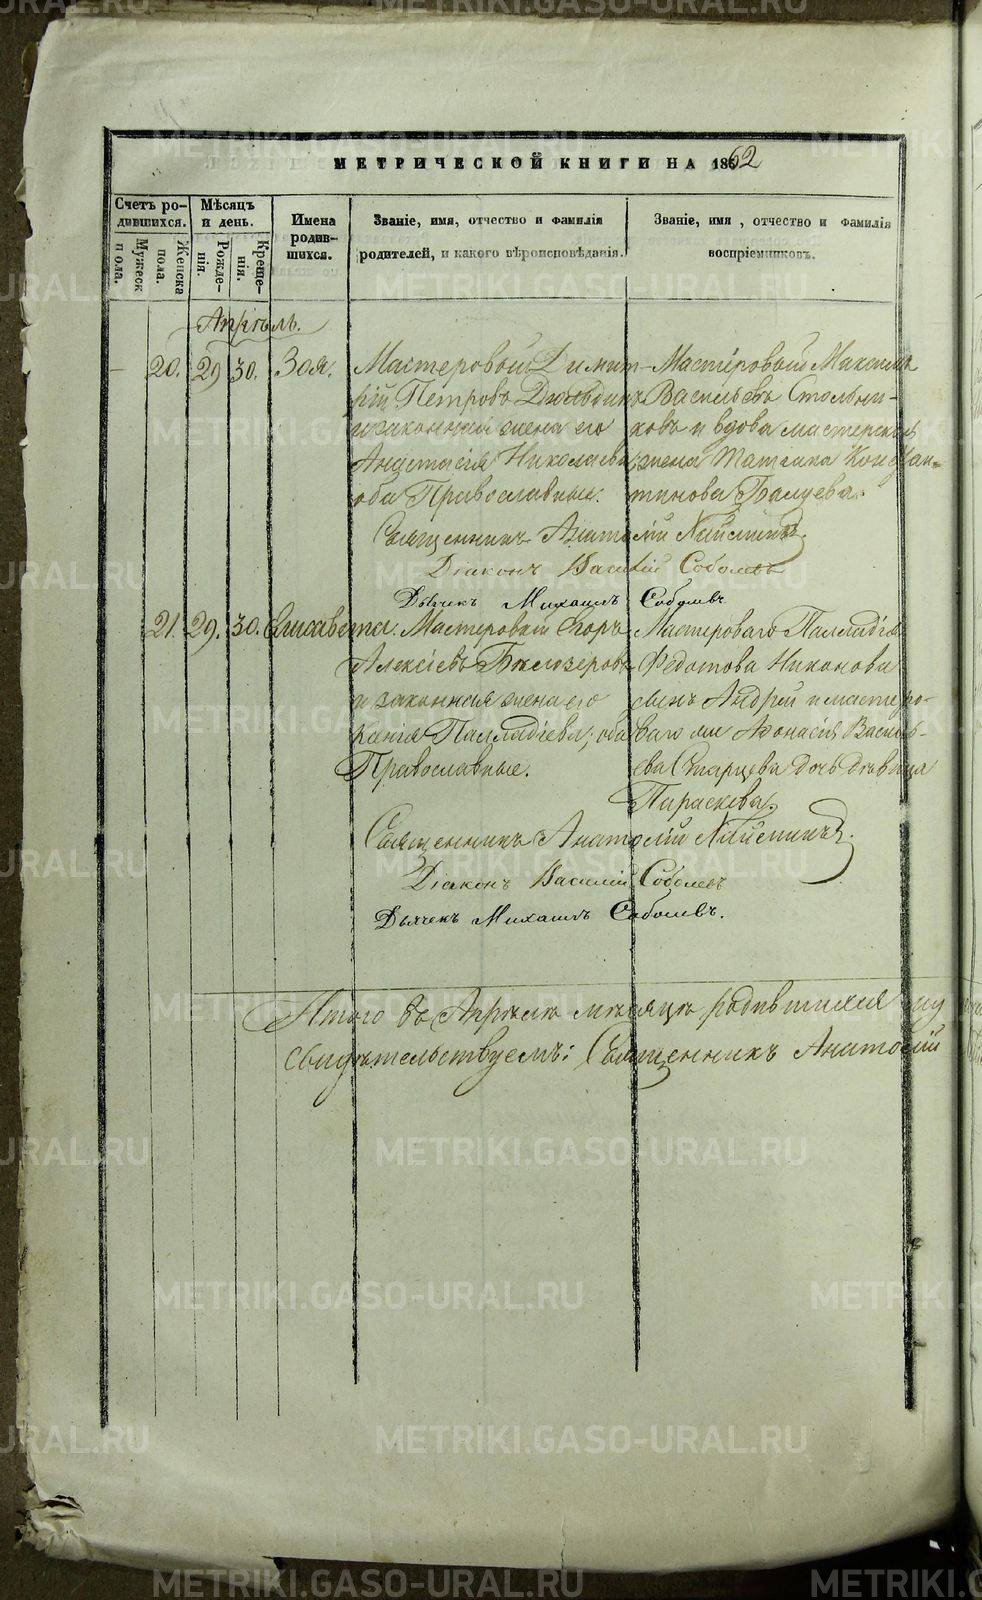 МЕТРИЧЕСКОЙ КНИГИ НА 1862
Счетъ родившихся.
Мужеск пола.
Женска пола.
Мѣсяцъ и день.
Рожденія.
Крещенія.
Имена родившихся.
Званіе, имя, отчество и фамилія родителей, и какого вѣроисповѣданія.
Званіе, имя, отчество и фамилія воспріемниковъ.
Апрѣль.
— 20. 29 30. Зоя.
Мастеровой Димит-
рій Петровъ
и законная жена его
Анастасія Николаева;
оба Православные.
Мастеровый Максимъ
Васильевъ Стольни-
ковъ и вдова мастерская
жена Татьяна Констан-
тинова
Священникъ Анатолій
Діаконъ Василій Соболевъ
Дьячекъ Михаилъ Соболевъ
21. 29. 30. Елисавета.
Мастеровый Егоръ
Алексѣевъ Бѣлозеровъ
и законная жена его
Палладіева; оба
Православные.
Мастероваго Палладія
Федотова Никонова
сынъ Андрей и мастеро-
ваго Афонасія Василь-
ева Старцева дочь дѣвица
Параскева.
Священникъ Анатолій
Діаконъ Василій Соболевъ
Дьячекъ Михаилъ Соболевъ.
Итого въ Апрѣлѣ мѣсяцѣ родившихся
свидѣтельствуемъ: Священникъ Анатолій
METRIKI.GASO-URAL.RU